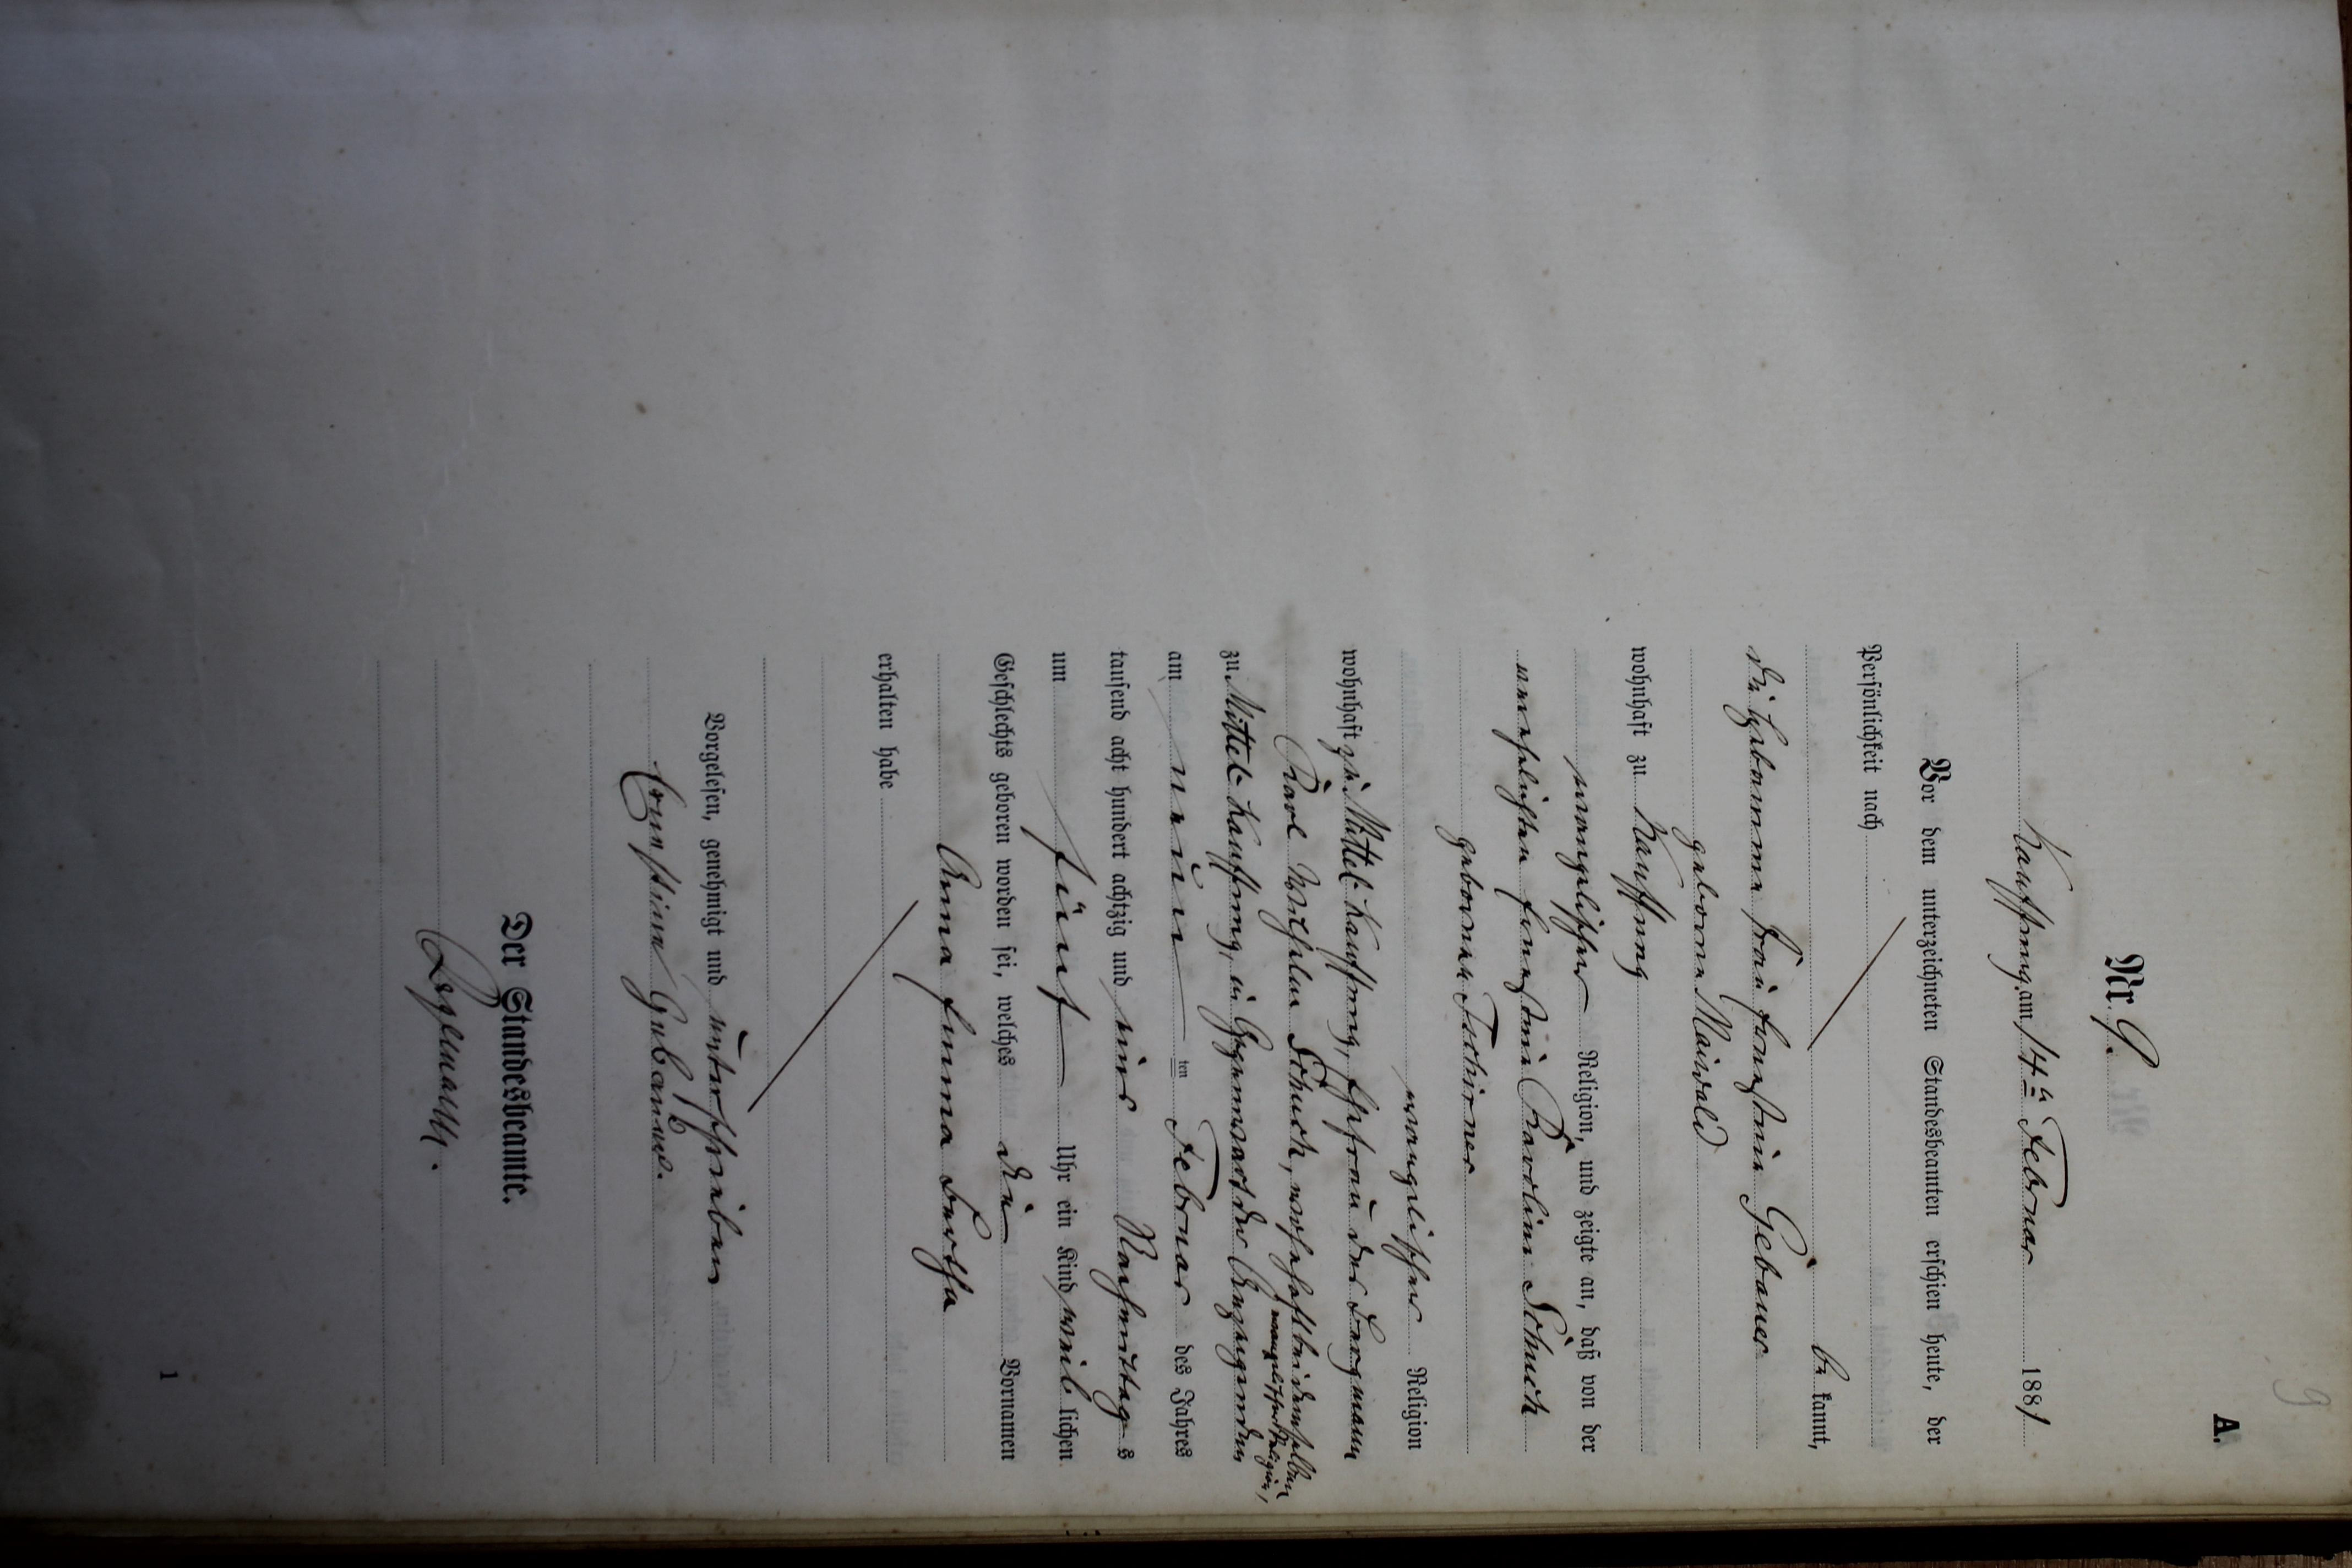 9
A.
Nr. 9.
Kauffung, am 14ten Februar 1881
Vor dem unterzeichneten Standesbeamten erschien heute, der
Persönlichkeit nach
be kannt,
die Hebamme Frau Ernestine Gebauer
geborne Maiwald
wohnhaft zu Kauffung
evangelischer Religion, und zeigte an, daß von der
verehelichten Ernestine Karoline Schuch
gebornen Tschirner
evangelischer Religion
wohnhaft zu Mittel-Kauffung, Ehefrau des Bergmann
Karl Wilhelm Schuch, wohnhaft bei demselben
evangelischer Religion,
zu Mittel-Kauffung, in Gegenwart der Anzeigenden
am neun ten Februar des Jahres
tausend acht hundert achtzig und eins Nachmittag s
um fünf Uhr ein Kind weib lichen
Geschlechts geboren worden sei, welches die Vornamen
Anna Emma Bertha
erhalten habe
Vorgelesen, genehmigt und unterschrieben
Ernestine Gebauer.
Der Standesbeamte.
1